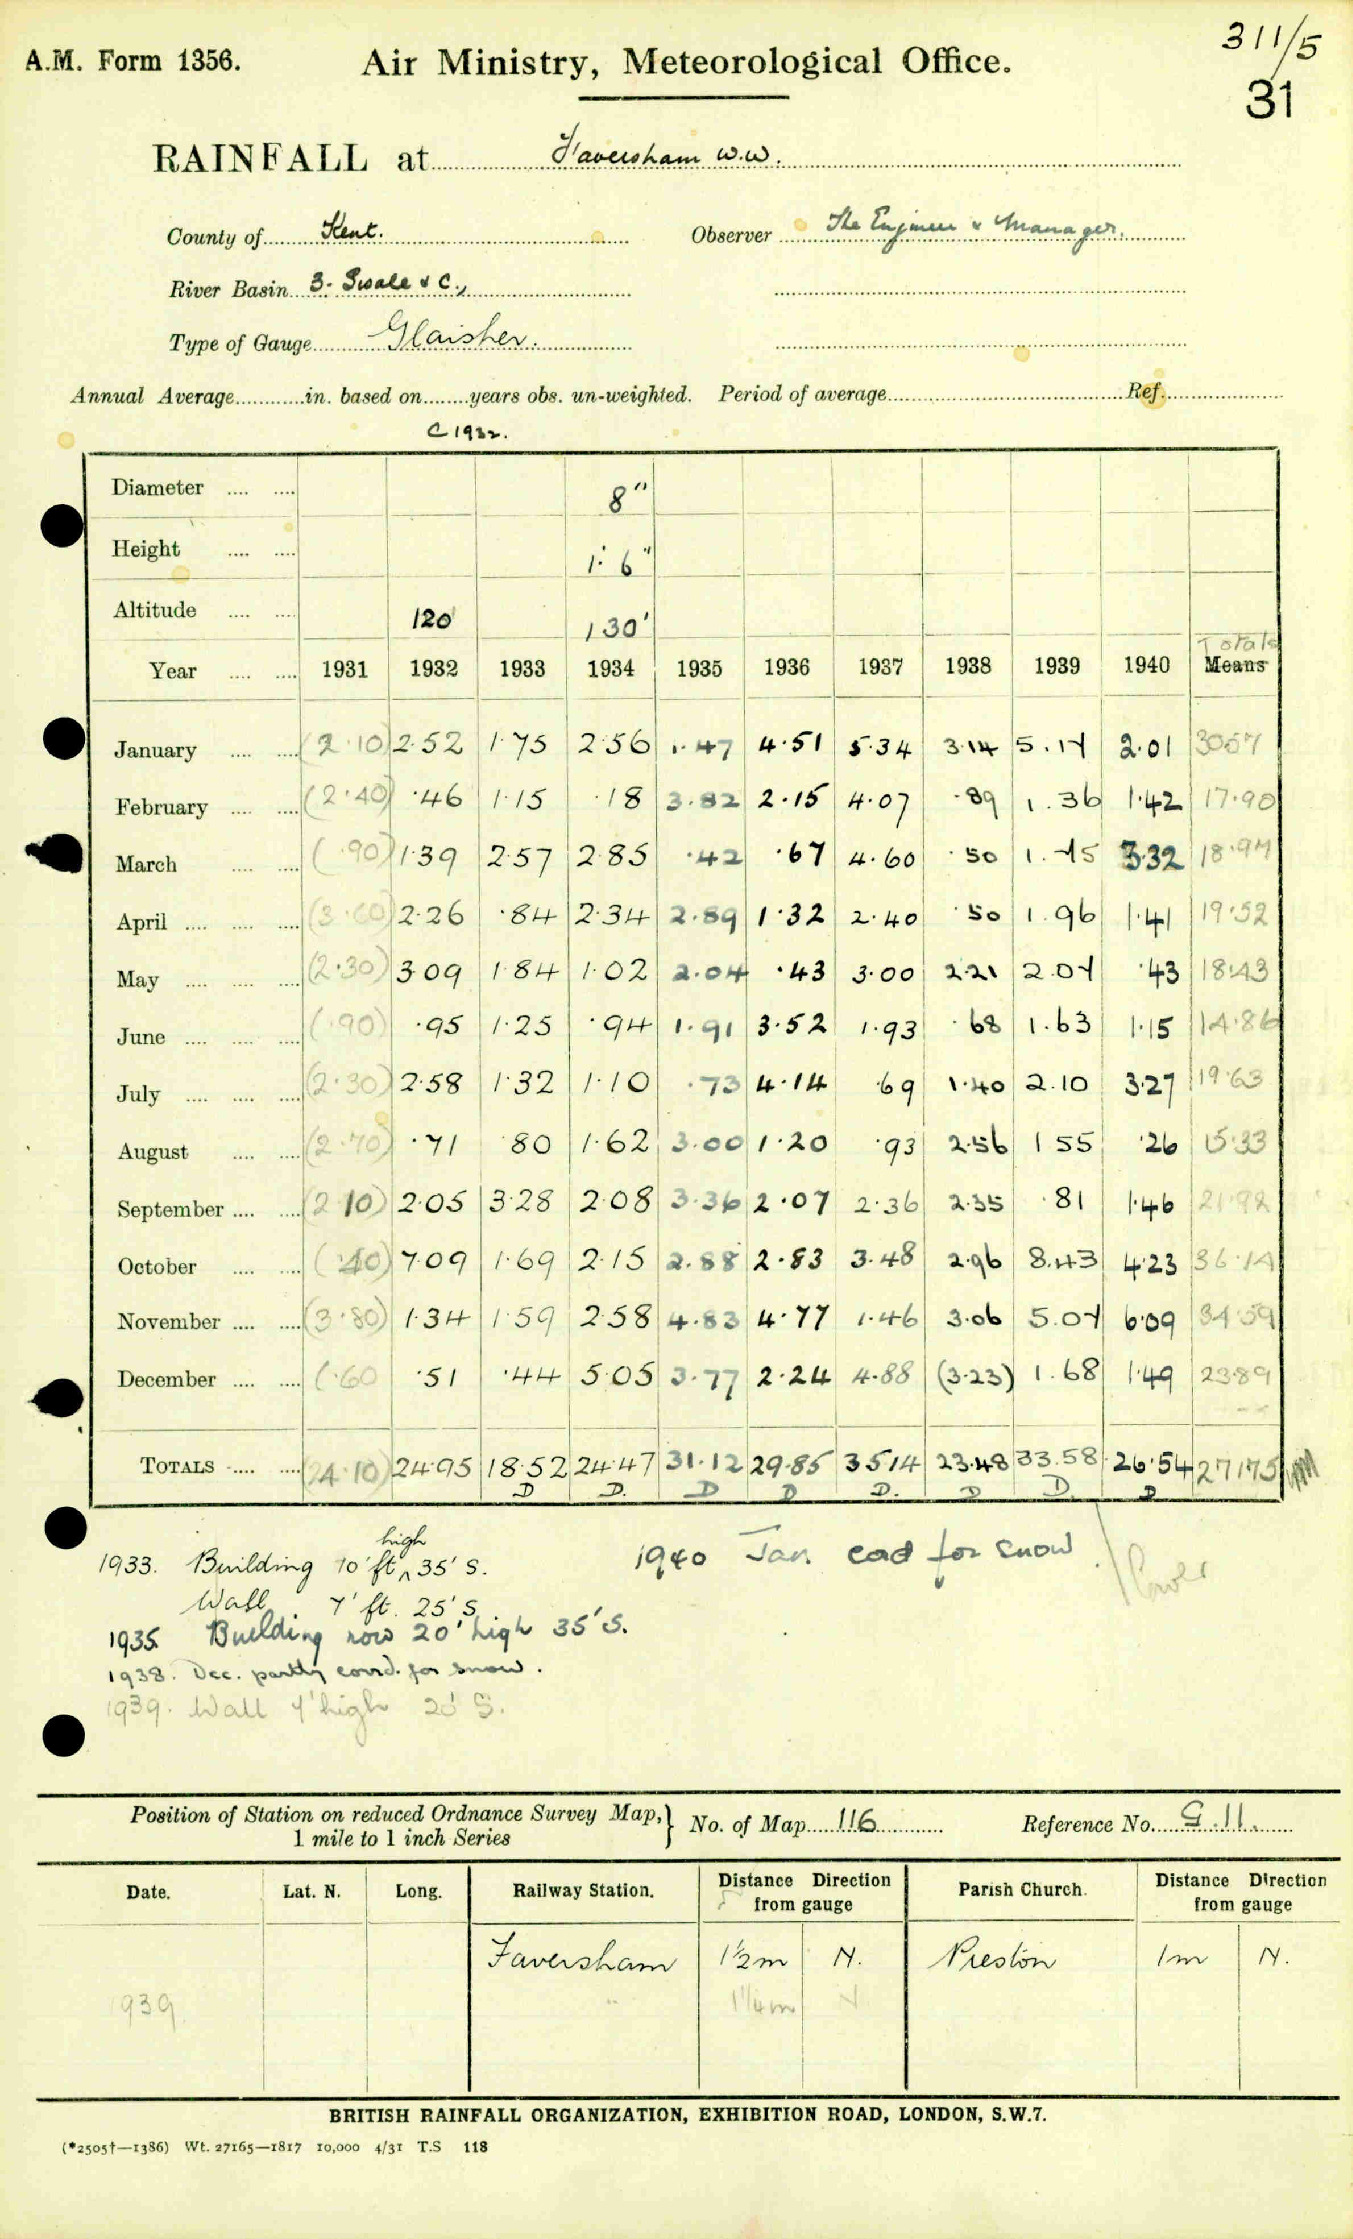 311/5
A.M. Form 1356. Air Ministry, Meteorological Office.
31
RAINFALL at Faversham W.W.
County of Kent. Observer The Engineer & Manager.
River Basin 3. Swale & C.,
Type of Gauge Glaisher.
Annual Average in. based on years obs. un-weighted. Period of average Ref.
C 1932.
Diameter 8"
Height 1' 6"
Altitude 120 130'
Totals
Year 1931 1932 1933 1934 1935 1936 1937 1938 1939 1940 Means
January (2·10) 2·52 1·75 2·56 1·47 4·51 5·34 3·14 5.17 2·01 3057
February (2·40) ·46 1·15 ·18 3.82 2·15 4·07 ·89 1.36 1·42 17·90
March (·90) 1·39 2·57 2·85 ·42 ·67 4·60 ·50 1.75 3·32 18·97
April (3·60) 2·26 ·84 2·34 2·89 1·32 2·40 ·50 1.96 1·41 19·52
May (2·30) 3·09 1·84 1·02 2·04 ·43 3·00 2·21 2.07 ·43 18·43
June (·90) ·95 1·25 ·94 1·91 3·52 1·93 ·68 1.63 1·15 14·86
July (2·30) 2·58 1·32 1·10 ·73 4·14 ·69 1·40 2.10 3·27 19·63
August (2·70) ·71 80 1·62 3·00 1·20 ·93 2·56 1 55 ·26 15·33
September (2 10) 2·05 3·28 2·08 3·36 2·07 2·36 2·35 ·81 1·46 21·92
October (·40) 7·09 1·69 2·15 2·88 2·83 3·48 2·96 8.43 4·23 36·14
November (3·80) 1·34 1·59 2·58 4·83 4·77 1·46 3·06 5.07 6·09 34·59
December (·60 ·51 ·44 5·05 3·77 2·24 4·88 (3·23) 1.68 1·49 23·89
TOTALS 24·10) 24·95 18·52 24·47 31·12 29·85 35·14 23·48 33.58 26·54 271·75
D D. D D D. D D. D
high
1933. Building 10' ft ^ 35' S. 1940 Jan. eod for snow
Wall 7' ft. 25' S
1935 Building now 20' high 35' S.
1938. Dec. partly eovd. for snow.
1939. Wall 7' high 20' S.
Position of Station on reduced Ordnance Survey Map, 1 mile to 1 inch Series } No. of Map 116 Reference No. G.11.
Date. Lat. N. Long. Railway Station. Distance Direction from gauge Parish Church. Distance Direction from gauge
Faversham 1½m N. Preston 1m N.
1939 " 1¼m N
BRITISH RAINFALL ORGANIZATION, EXHIBITION ROAD, LONDON, S.W.7.
(*2505†—1386) Wt. 27165—1817 10,000 4/31 T.S 118